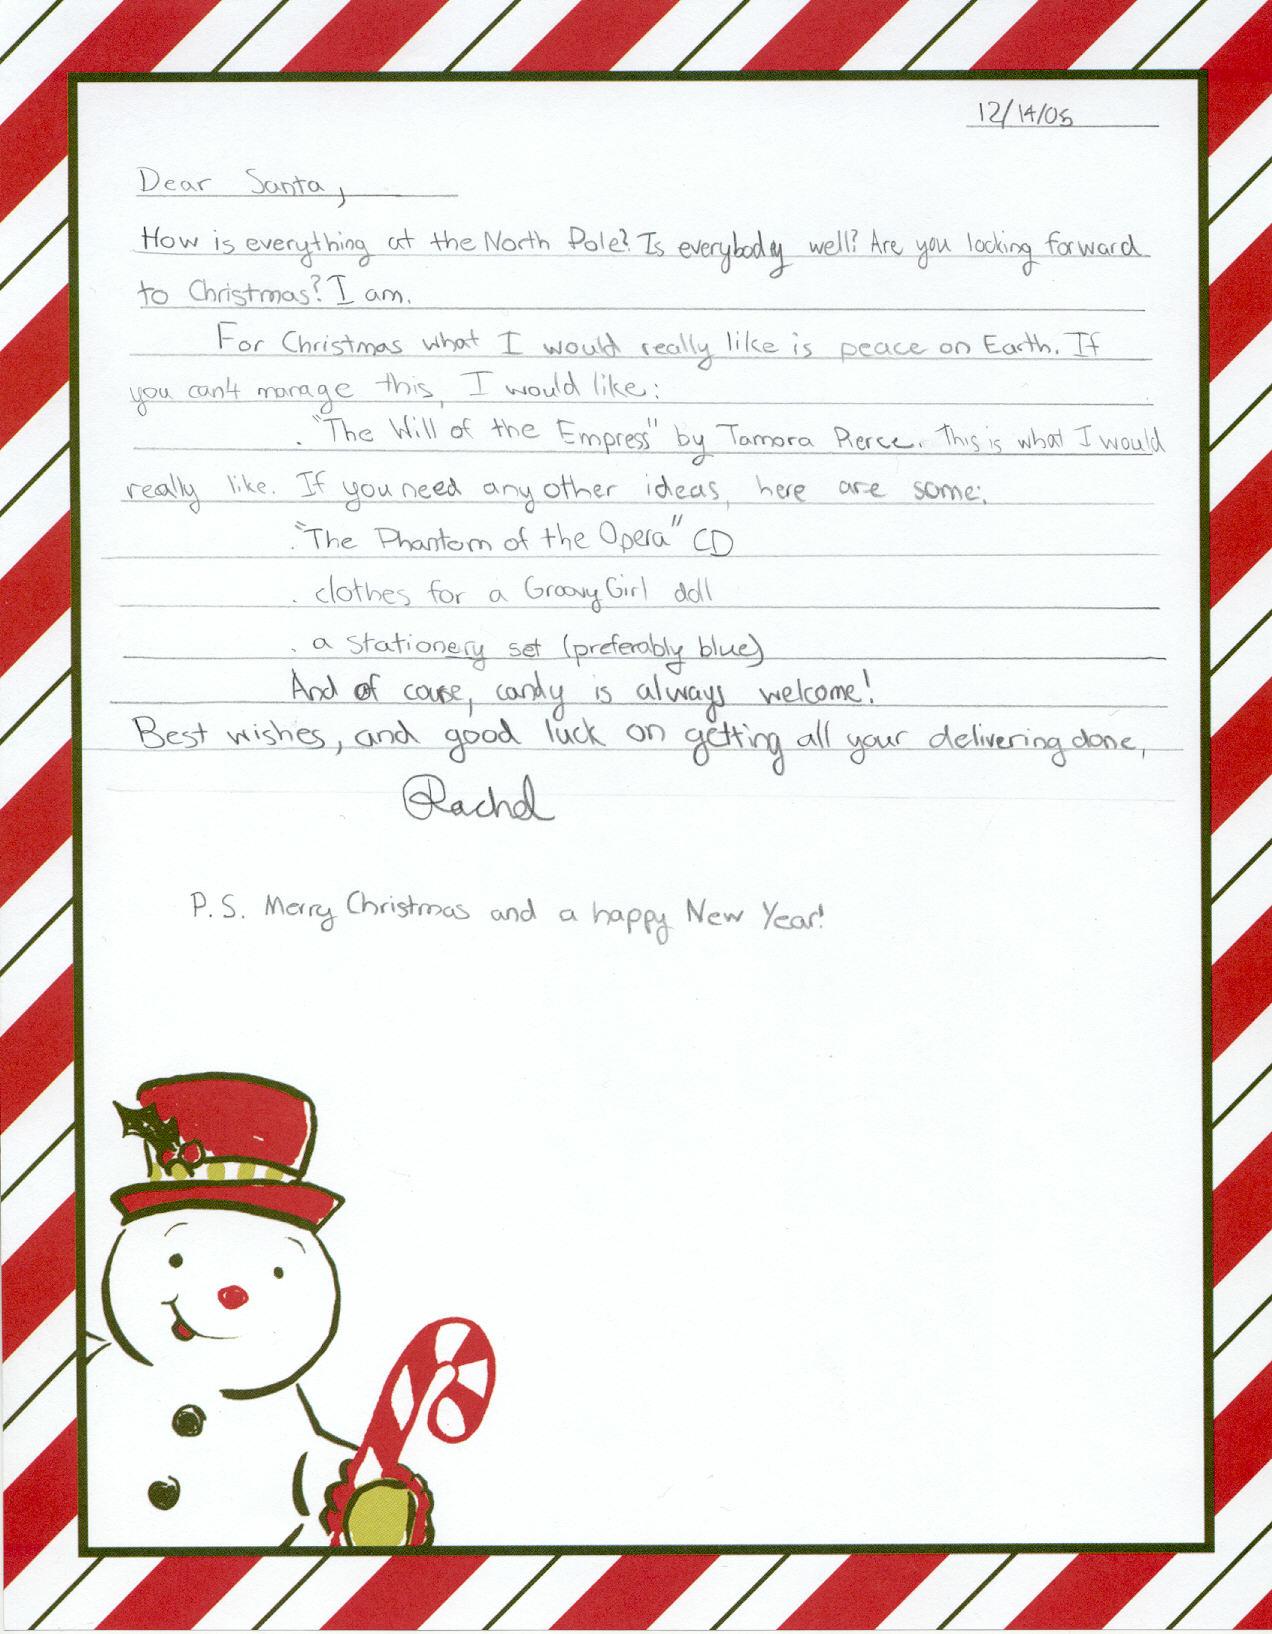 12/14/05
Dear Santa,
How is everything at the North Pole? Is everybody well? Are you looking forward
to Christmas? I am.
For Christmas what I would really like is peace on Earth. If
you can't manage this, I would like:
. "The Will of the Empress" by Tamora Pierce. This is what I would
really like. If you need any other ideas, here are some:
. "The Phantom of the Opera" CD
. clothes for a Groovy Girl doll
. a stationery set (preferably blue)
And of couse, candy is always welcome!
Best wishes, and good luck on getting all your delivering done,
Rachel
P.S. Merry Christmas and a happy New Year!